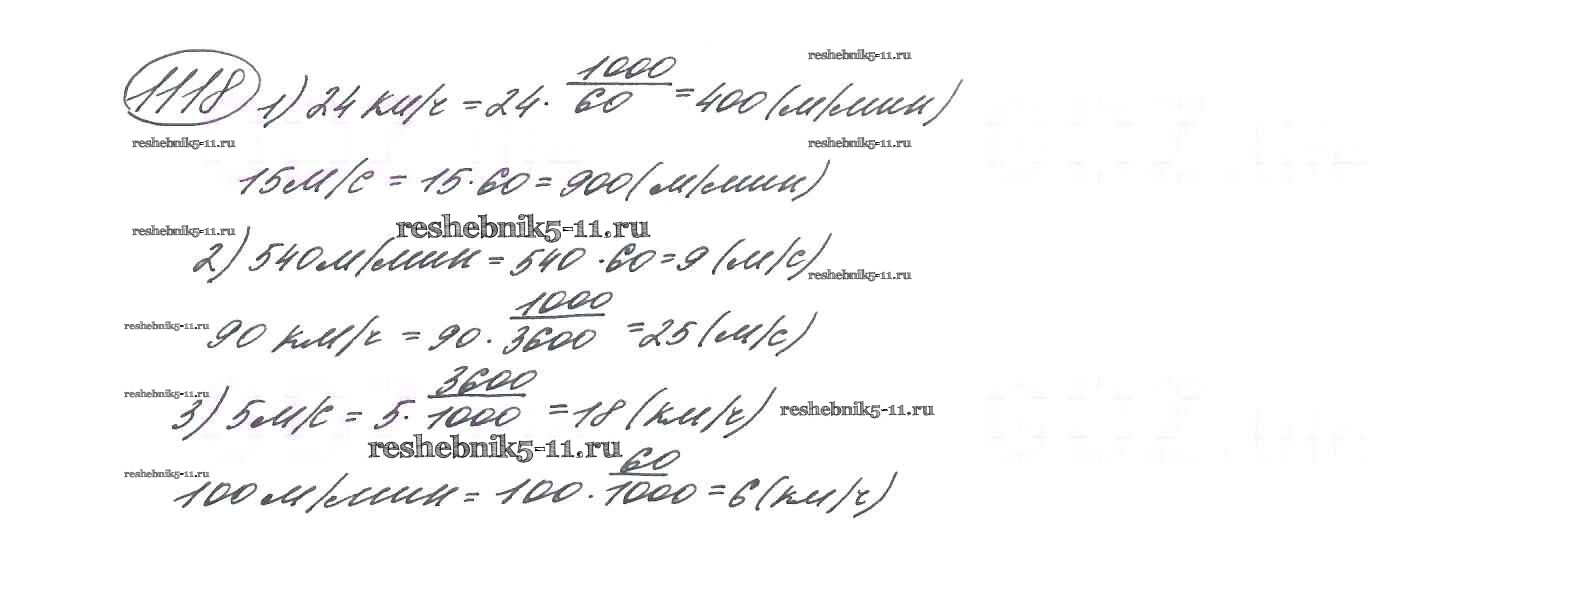 reshebnik5-11.ru
1118 1) 24 км/ч = 24 · 1000/60 = 400 (м/мин)
reshebnik5-11.ru reshebnik5-11.ru
15 м/с = 15 · 60 = 900 (м/мин)
reshebnik5-11.ru reshebnik5-11.ru
2) 540 м/мин = 540 · 60 = 9 (м/с)
reshebnik5-11.ru
reshebnik5-11.ru 90 км/ч = 90 · 1000/3600 = 25 (м/с)
reshebnik5-11.ru
3) 5 м/с = 5 · 3600/1000 = 18 (км/ч) reshebnik5-11.ru
reshebnik5-11.ru
reshebnik5-11.ru
100 м/мин = 100 · 60/1000 = 6 (км/ч)